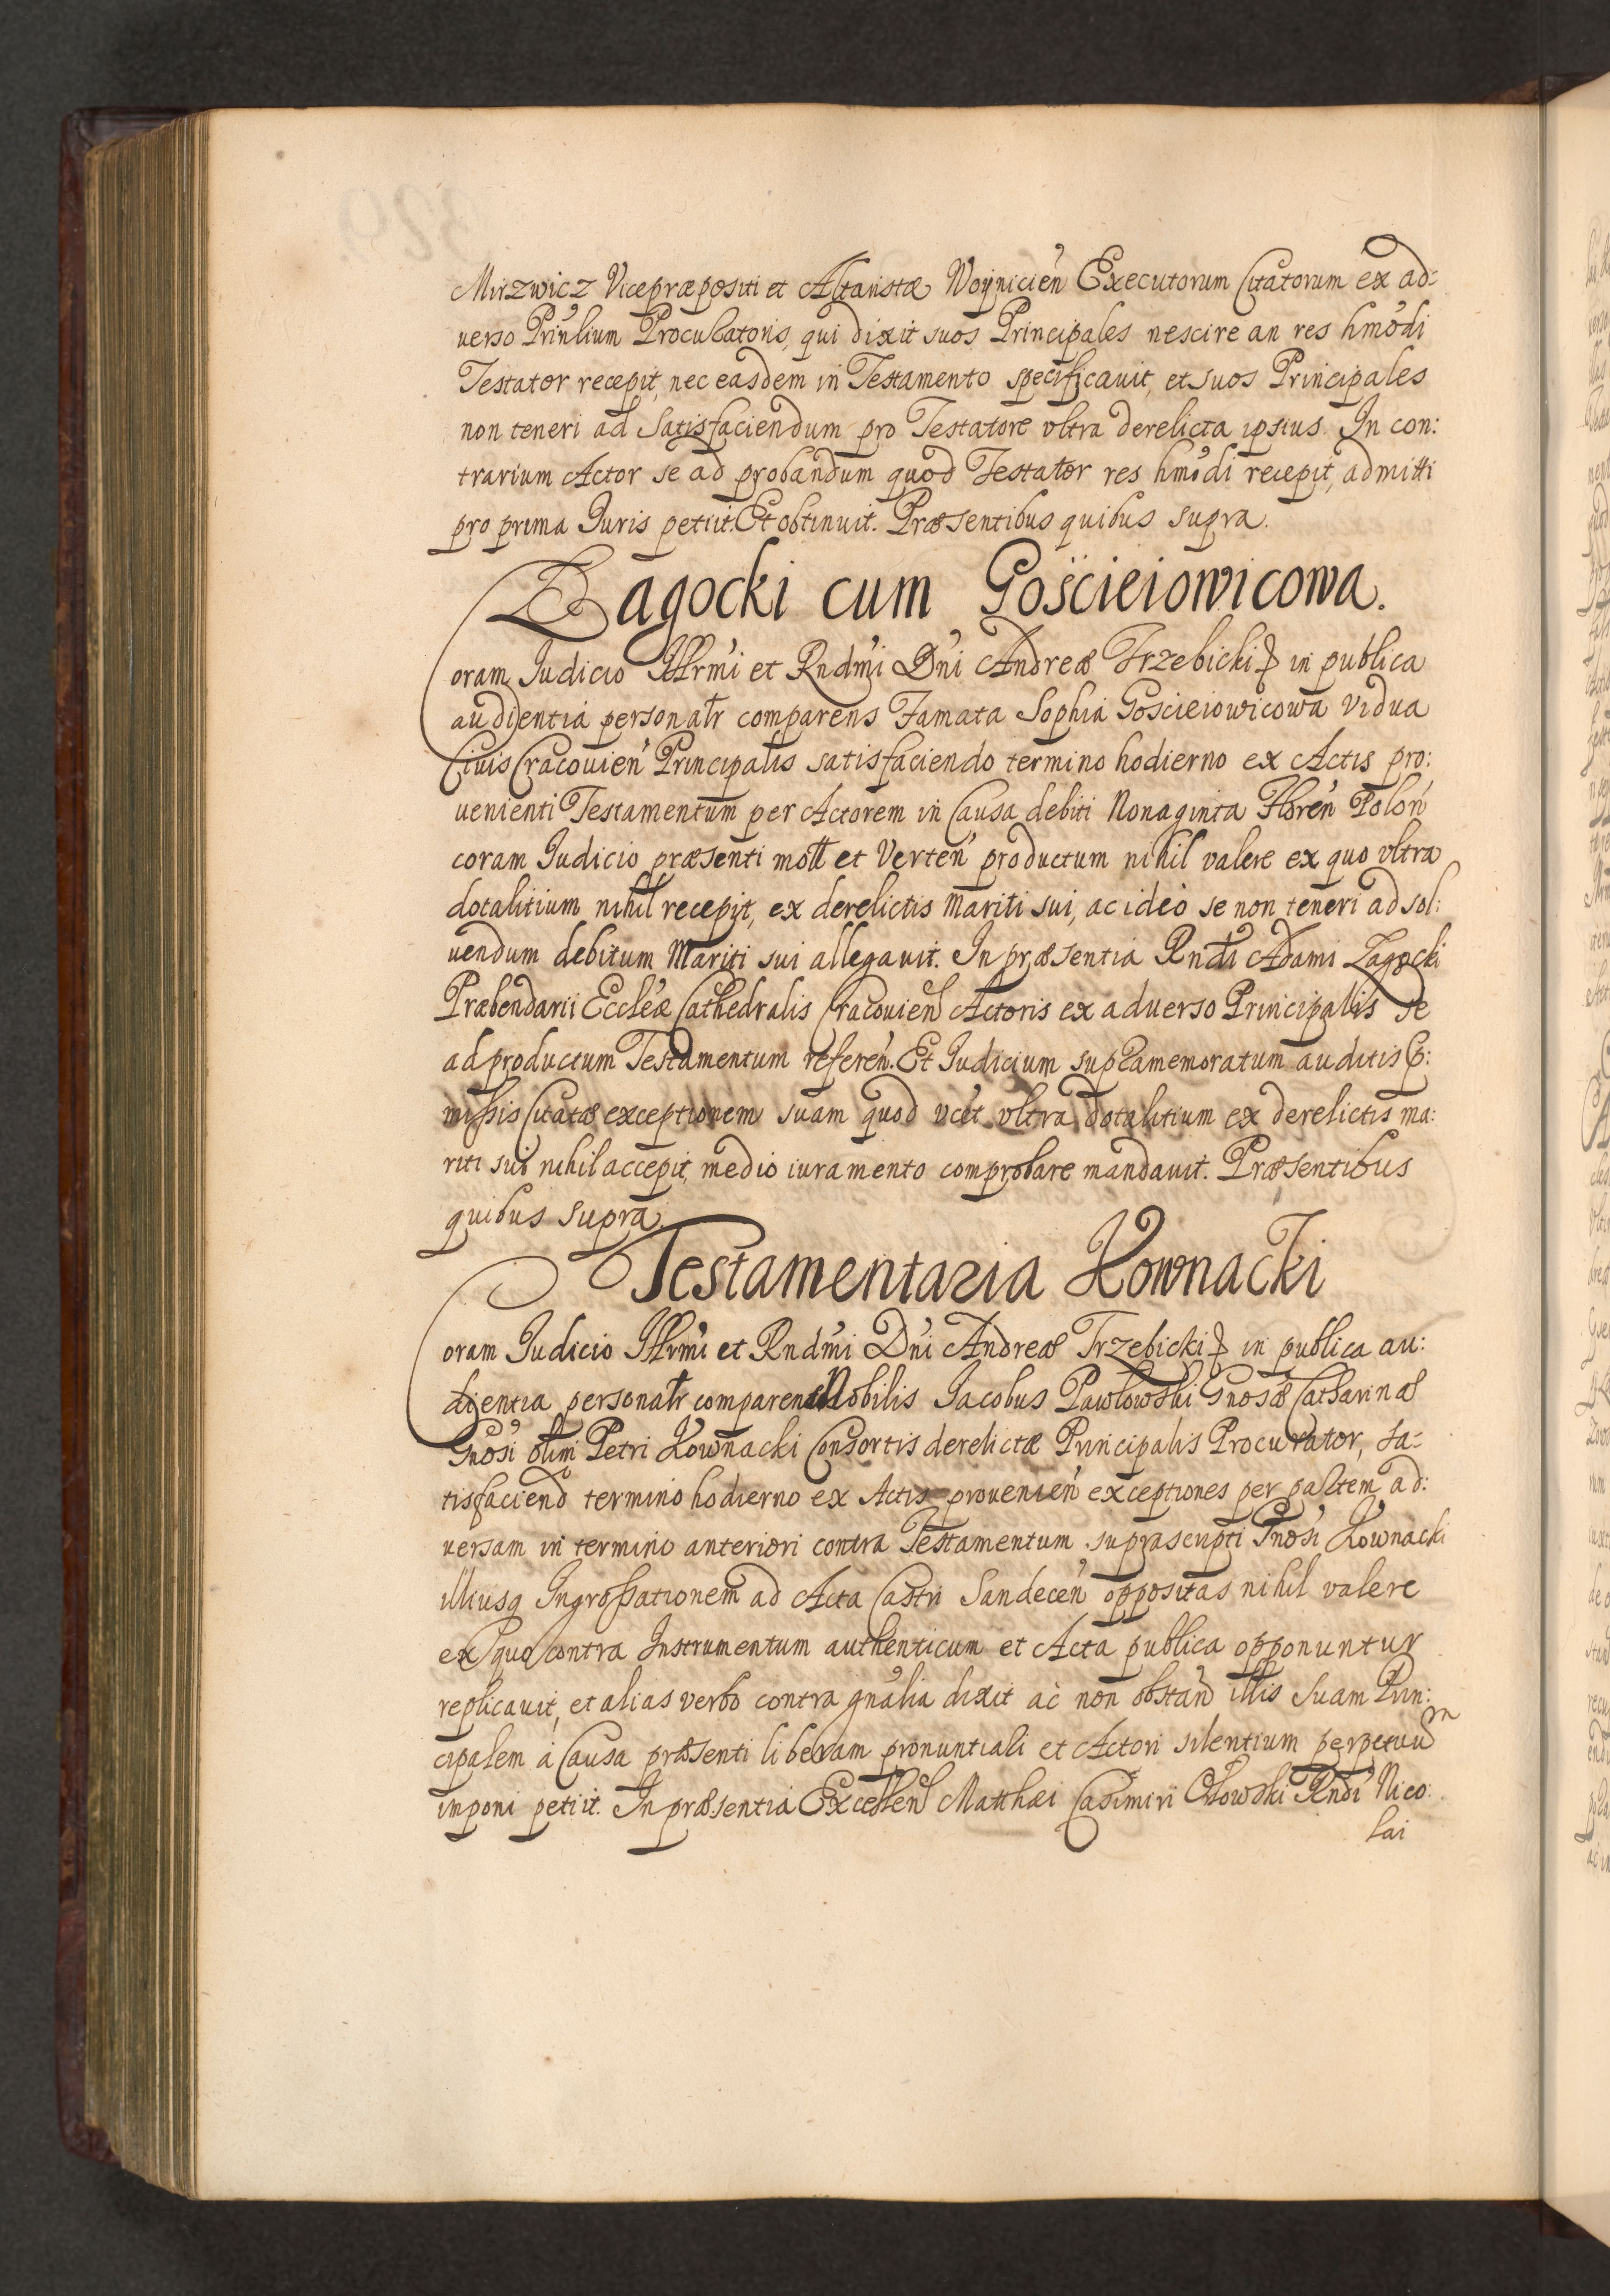 Mirzwicz Vicepræpositi et Altaristæ Woÿnicień Executorum Citatorum ex ad:
verso Prinlium Procuratoris, qui dixit suos Principales nescire an res hmõdi
Testator recepit, nec easdem in Testamento specificauit, et suos Principales
non teneri ad Satisfaciendum pro Testatore vltra derelicta ipsius. In con:
trarium Actor se ad probandum quod Testator res hmõdi recepit, admitti
pro prima Iuris petiit. Et obtinuit. Præsentibus quibus supra.
Zagocki cum Gościeiowicowa.
Coram Iudicio Illrmi et Rndmi Dni Andreæ Trzebicki in publica
audientia personalr comparens Famata Sophia Gościeiowicowa Vidua
Ciuis Cracouień Principalis satisfaciendo termino hodierno ex Actis pro:
uenienti Testamentum per Actorem in Causa debiti Nonaginta Floreń Poloń
coram Iudicio præsenti mott et Verteń productum nihil valere ex quo vltra
dotalitium nihil recepit, ex derelictis Mariti sui, ac ideò se non teneri ad sol:
uendum debitum Mariti sui allegauit. In præsentia Rndi Adami Zagocki
Præbendarii Ecclæ Cathedralis Cracouień Actoris ex aduerso Principalis se
ad productum Testamentum refereń. Et Iudicium supramemoratum auditis p:
missis Citatæ exceptionem suam quod vcet vltra dotalitium ex derelictis ma:
riti sui nihil accepit, medio iuramento comprobare mandauit. Præsentibus
quibus supra.
Testamentaria Kownacki
Coram Iudicio Illrmi et Rndmi Dni Andreæ Trzebicki in publica au:
dientia personalr comparens Nobilis Iacobus Pawłowski Gnosæ Catharinæ
Gnosi olim Petri Kownacki Consortis derelictæ Principalis Procurator, sa:
tisfaciend termino hodierno ex Actis prouenień exceptiones per partem ad:
uersam in termino anteriori contra Testamentum suprascripti Gnosi Kownacki
illiusq Ingrossationem ad Acta Castri Sandeceń oppositas nihil valere
ex quo contra Instrumentum authenticum et Acta publica opponuntur
replicauit, et alias verbo contra gnalia dixit ac non obstand illis suam Prin:
cipalem à Causa præsenti liberam pronuntiari et Actori silentium perpetuum
imponi petiit. In præsentia Excellen Matthæi Casimiri Rndi Nico:
lai